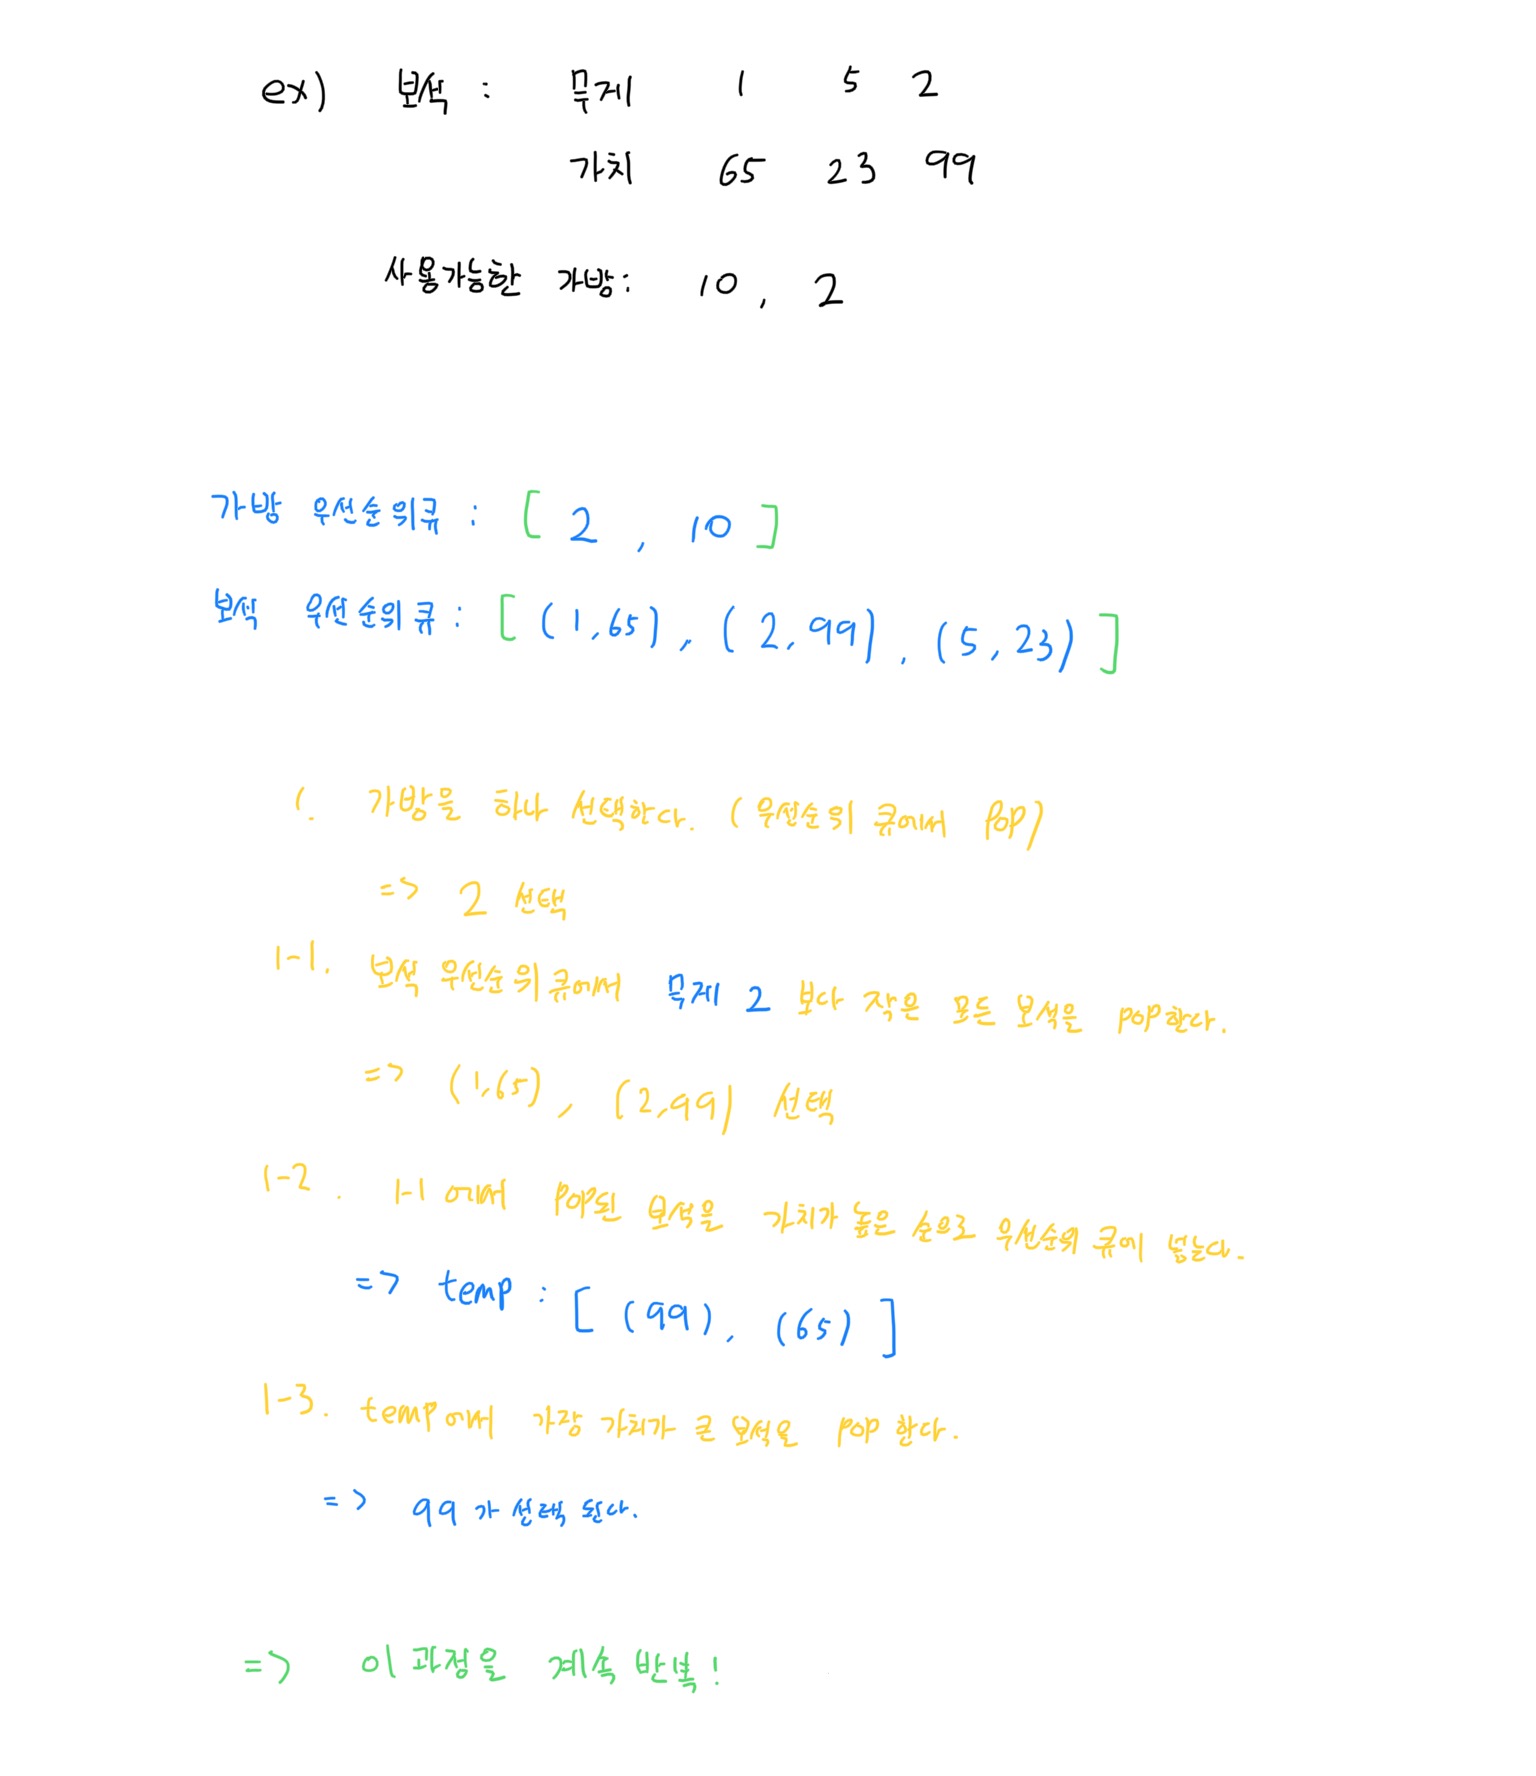 ex) 보석 : 무게 1 5 2
가치 65 23 99
사용가능한 가방: 10, 2
가방 우선순위큐 : [ 2 , 10 ]
보석 우선순위큐 : [ (1,65), (2,99), (5,23) ]
1. 가방을 하나 선택한다. (우선순위 큐에서 POP)
=> 2 선택
1-1. 보석 우선순위큐에서 무게 2 보다 작은 모든 보석을 POP한다.
=> (1,65), (2,99) 선택
1-2. 1-1에서 POP된 보석을 가치가 높은 순으로 우선순위 큐에 넣는다.
=> temp : [ (99), (65) ]
1-3. temp에서 가장 가치가 큰 보석을 POP 한다.
=> 99가 선택 된다.
=> 이 과정을 계속 반복!